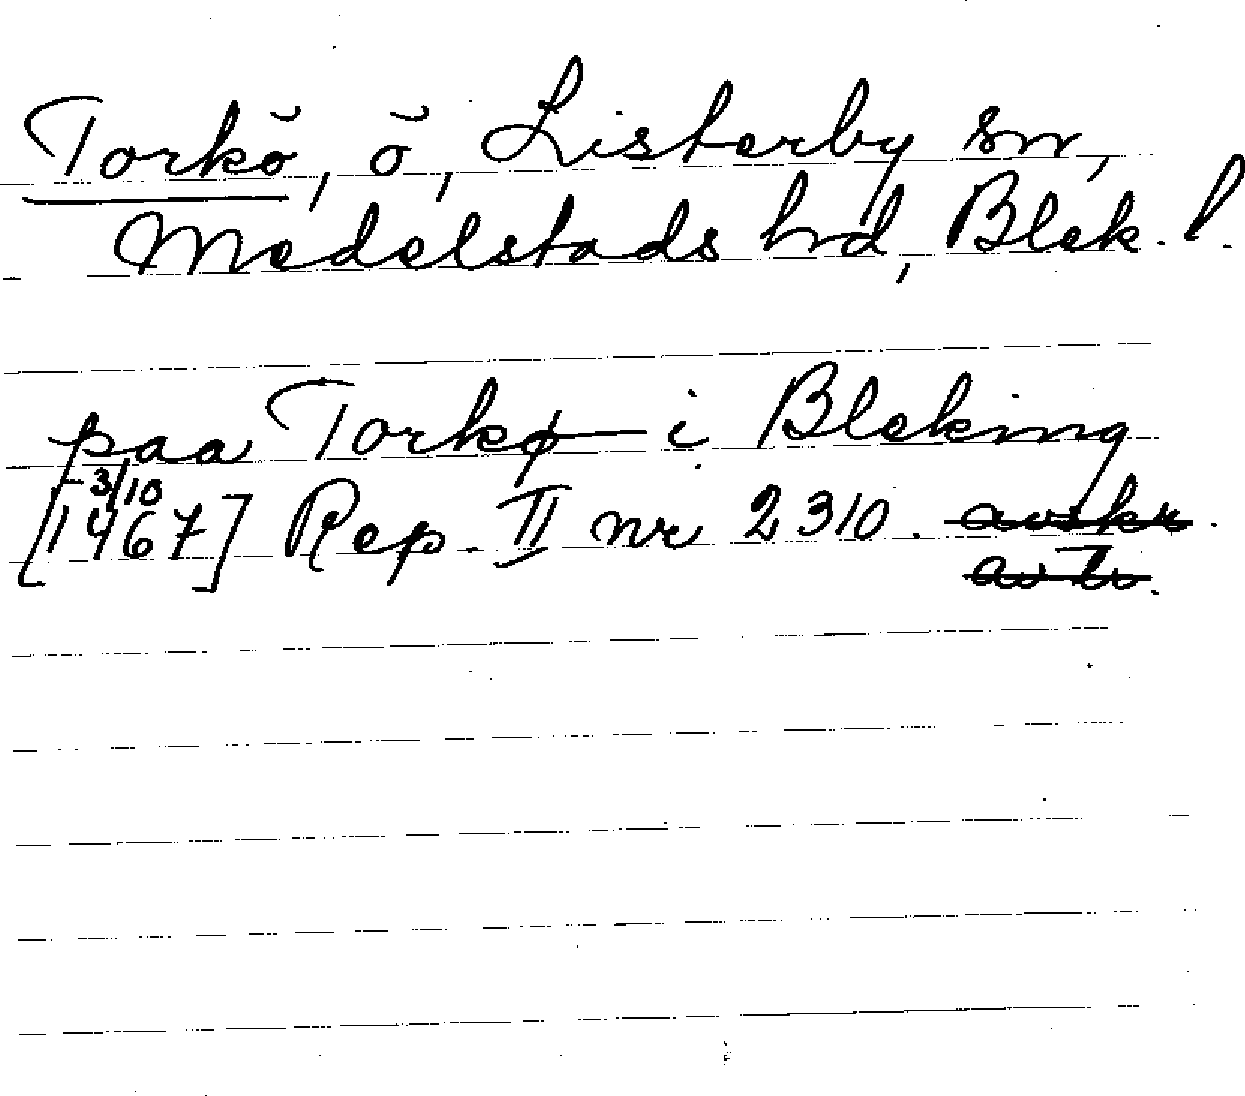 Torkö, ö, Listerby sn,
Medelstads hd, Blek. l.
paa Torkø i Bleking
[3/10 1467] Rep. II nr 2310. avskr.
av